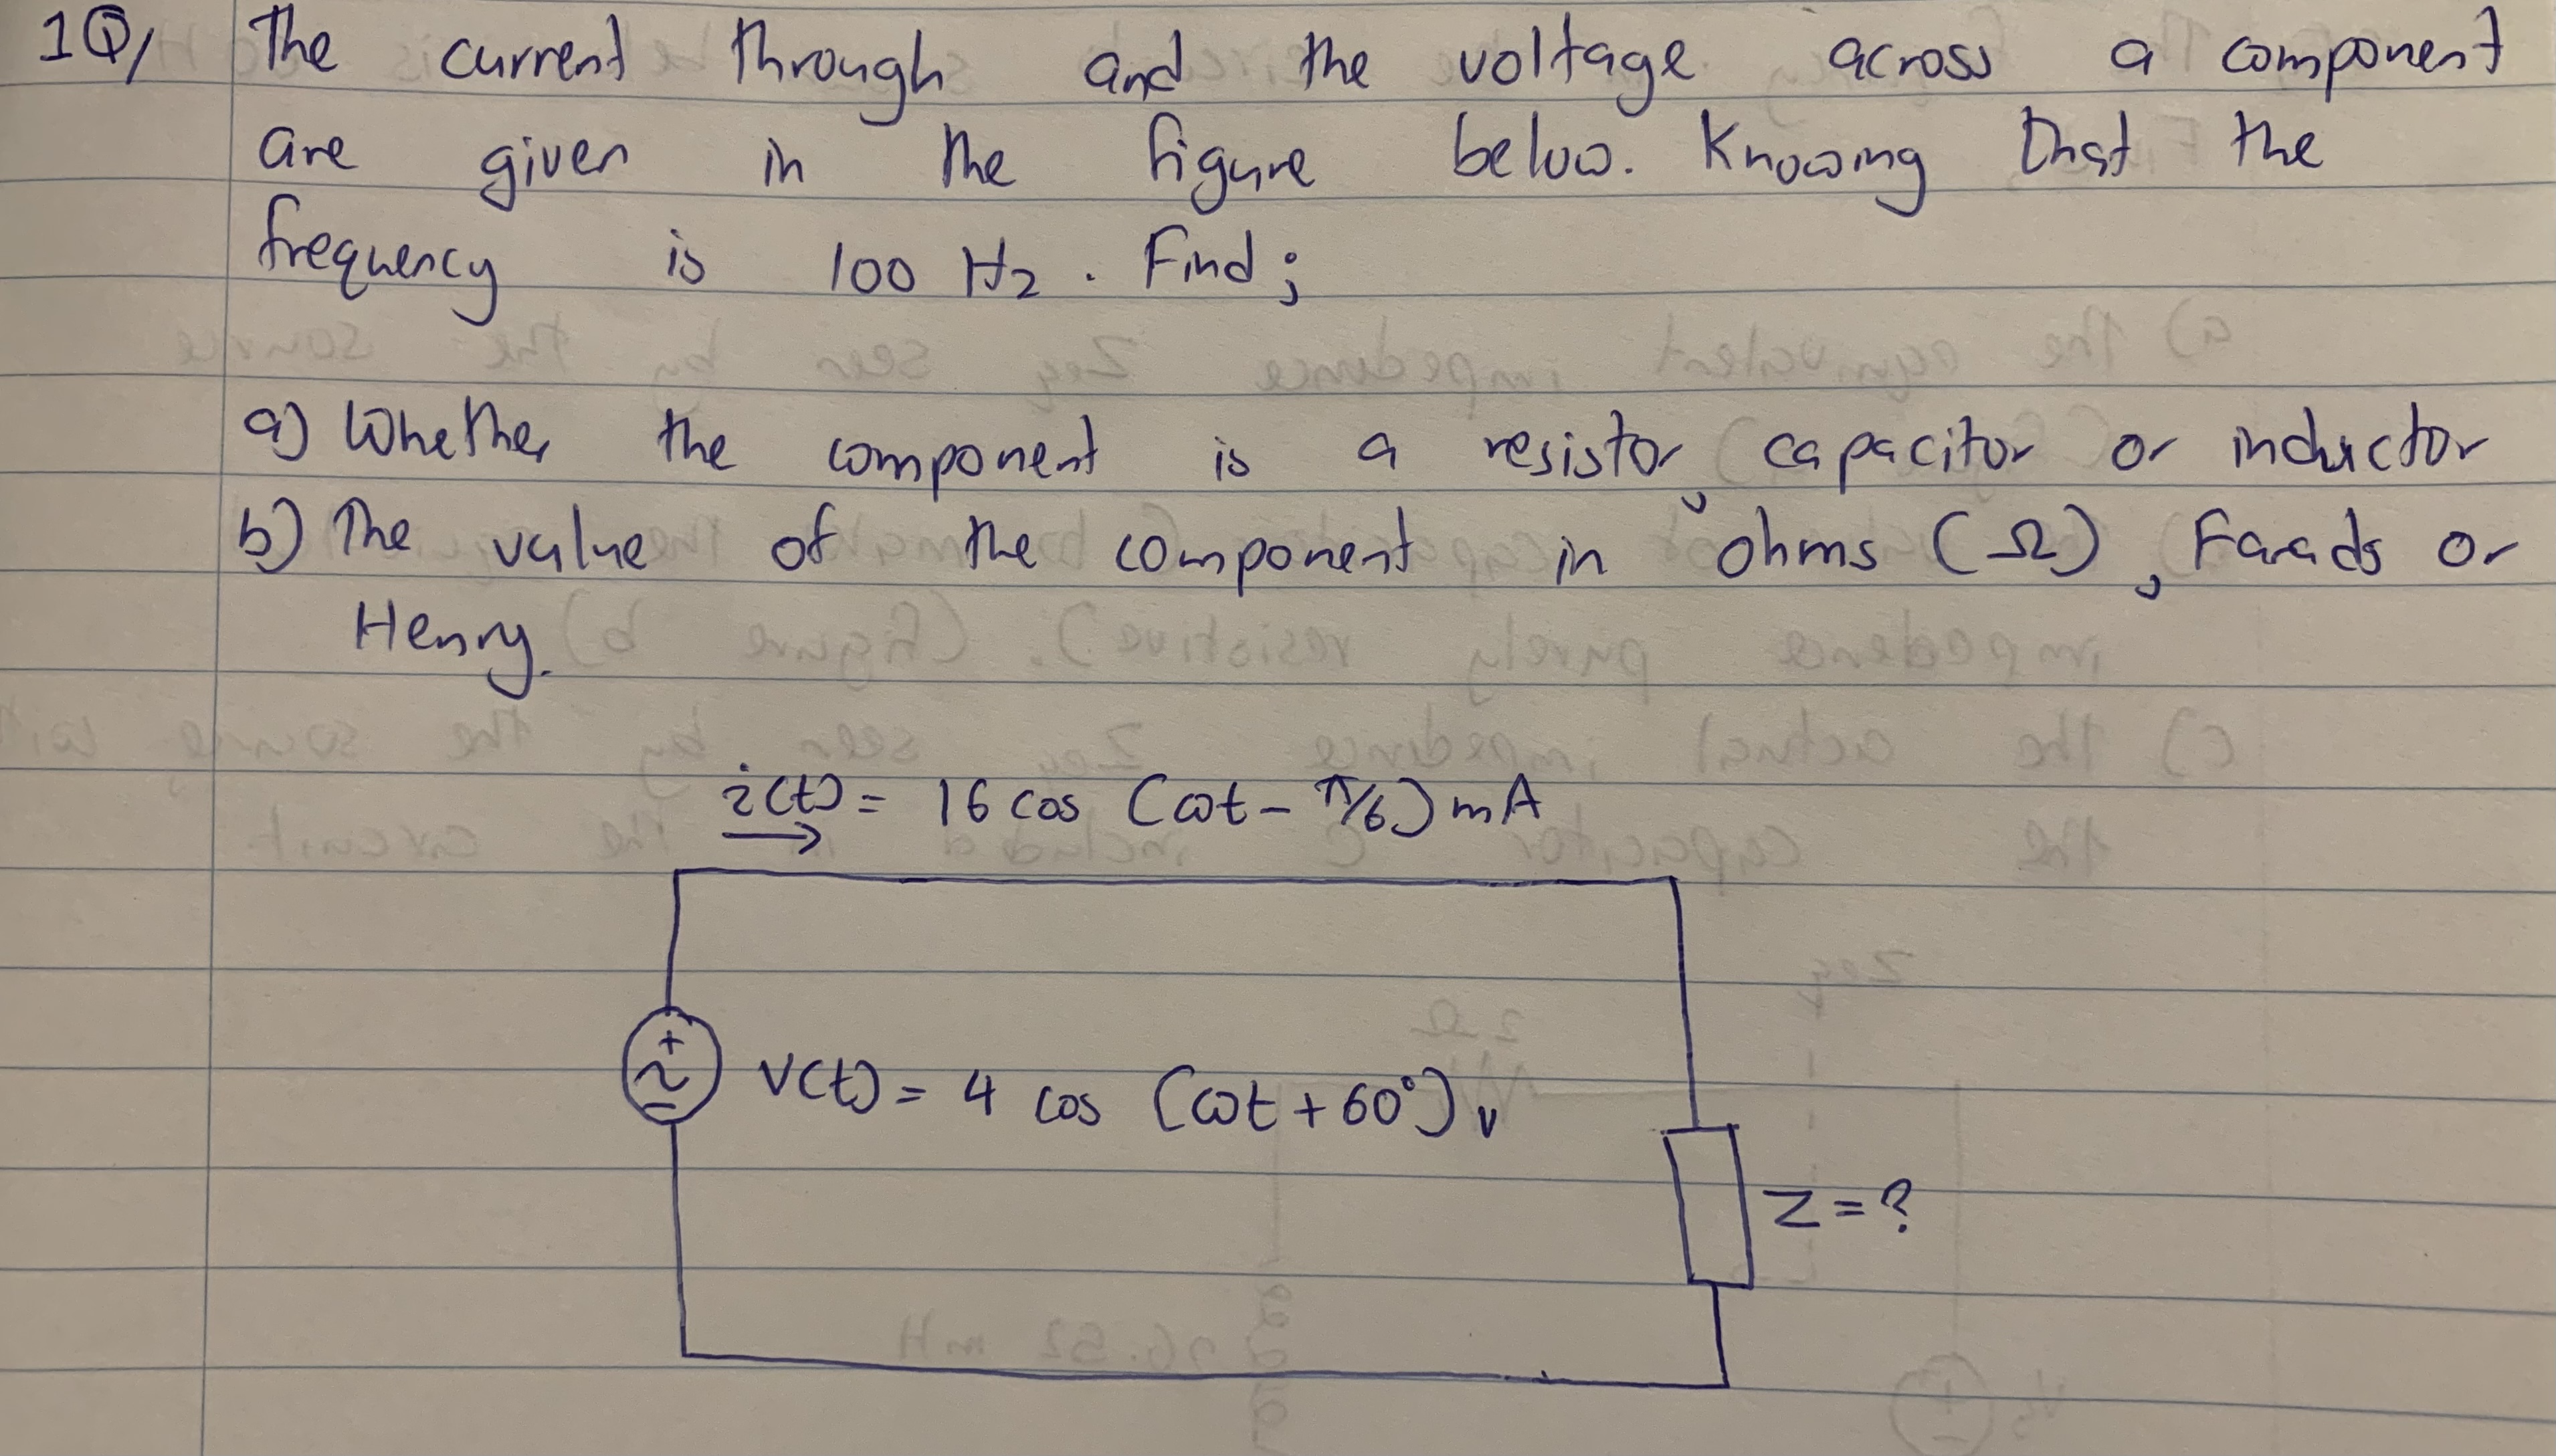 1Q/ The current through and the voltage across a component
are given in the figure below. Knowing that the
frequency is 100 Hz. Find;
a) Whether the component is a resistor, capacitor or inductor
b) The value of the component in ohms (Ω), Farads or
Henry.
i(t) = 16 cos (ωt - π/6) mA
+
V(t) = 4 cos (ωt + 60°) v
Z = ?